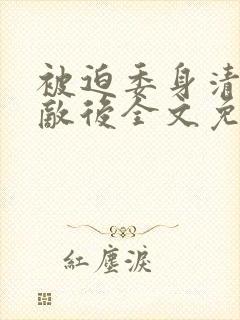 被迫委身清
敵後全文免
紅塵淚